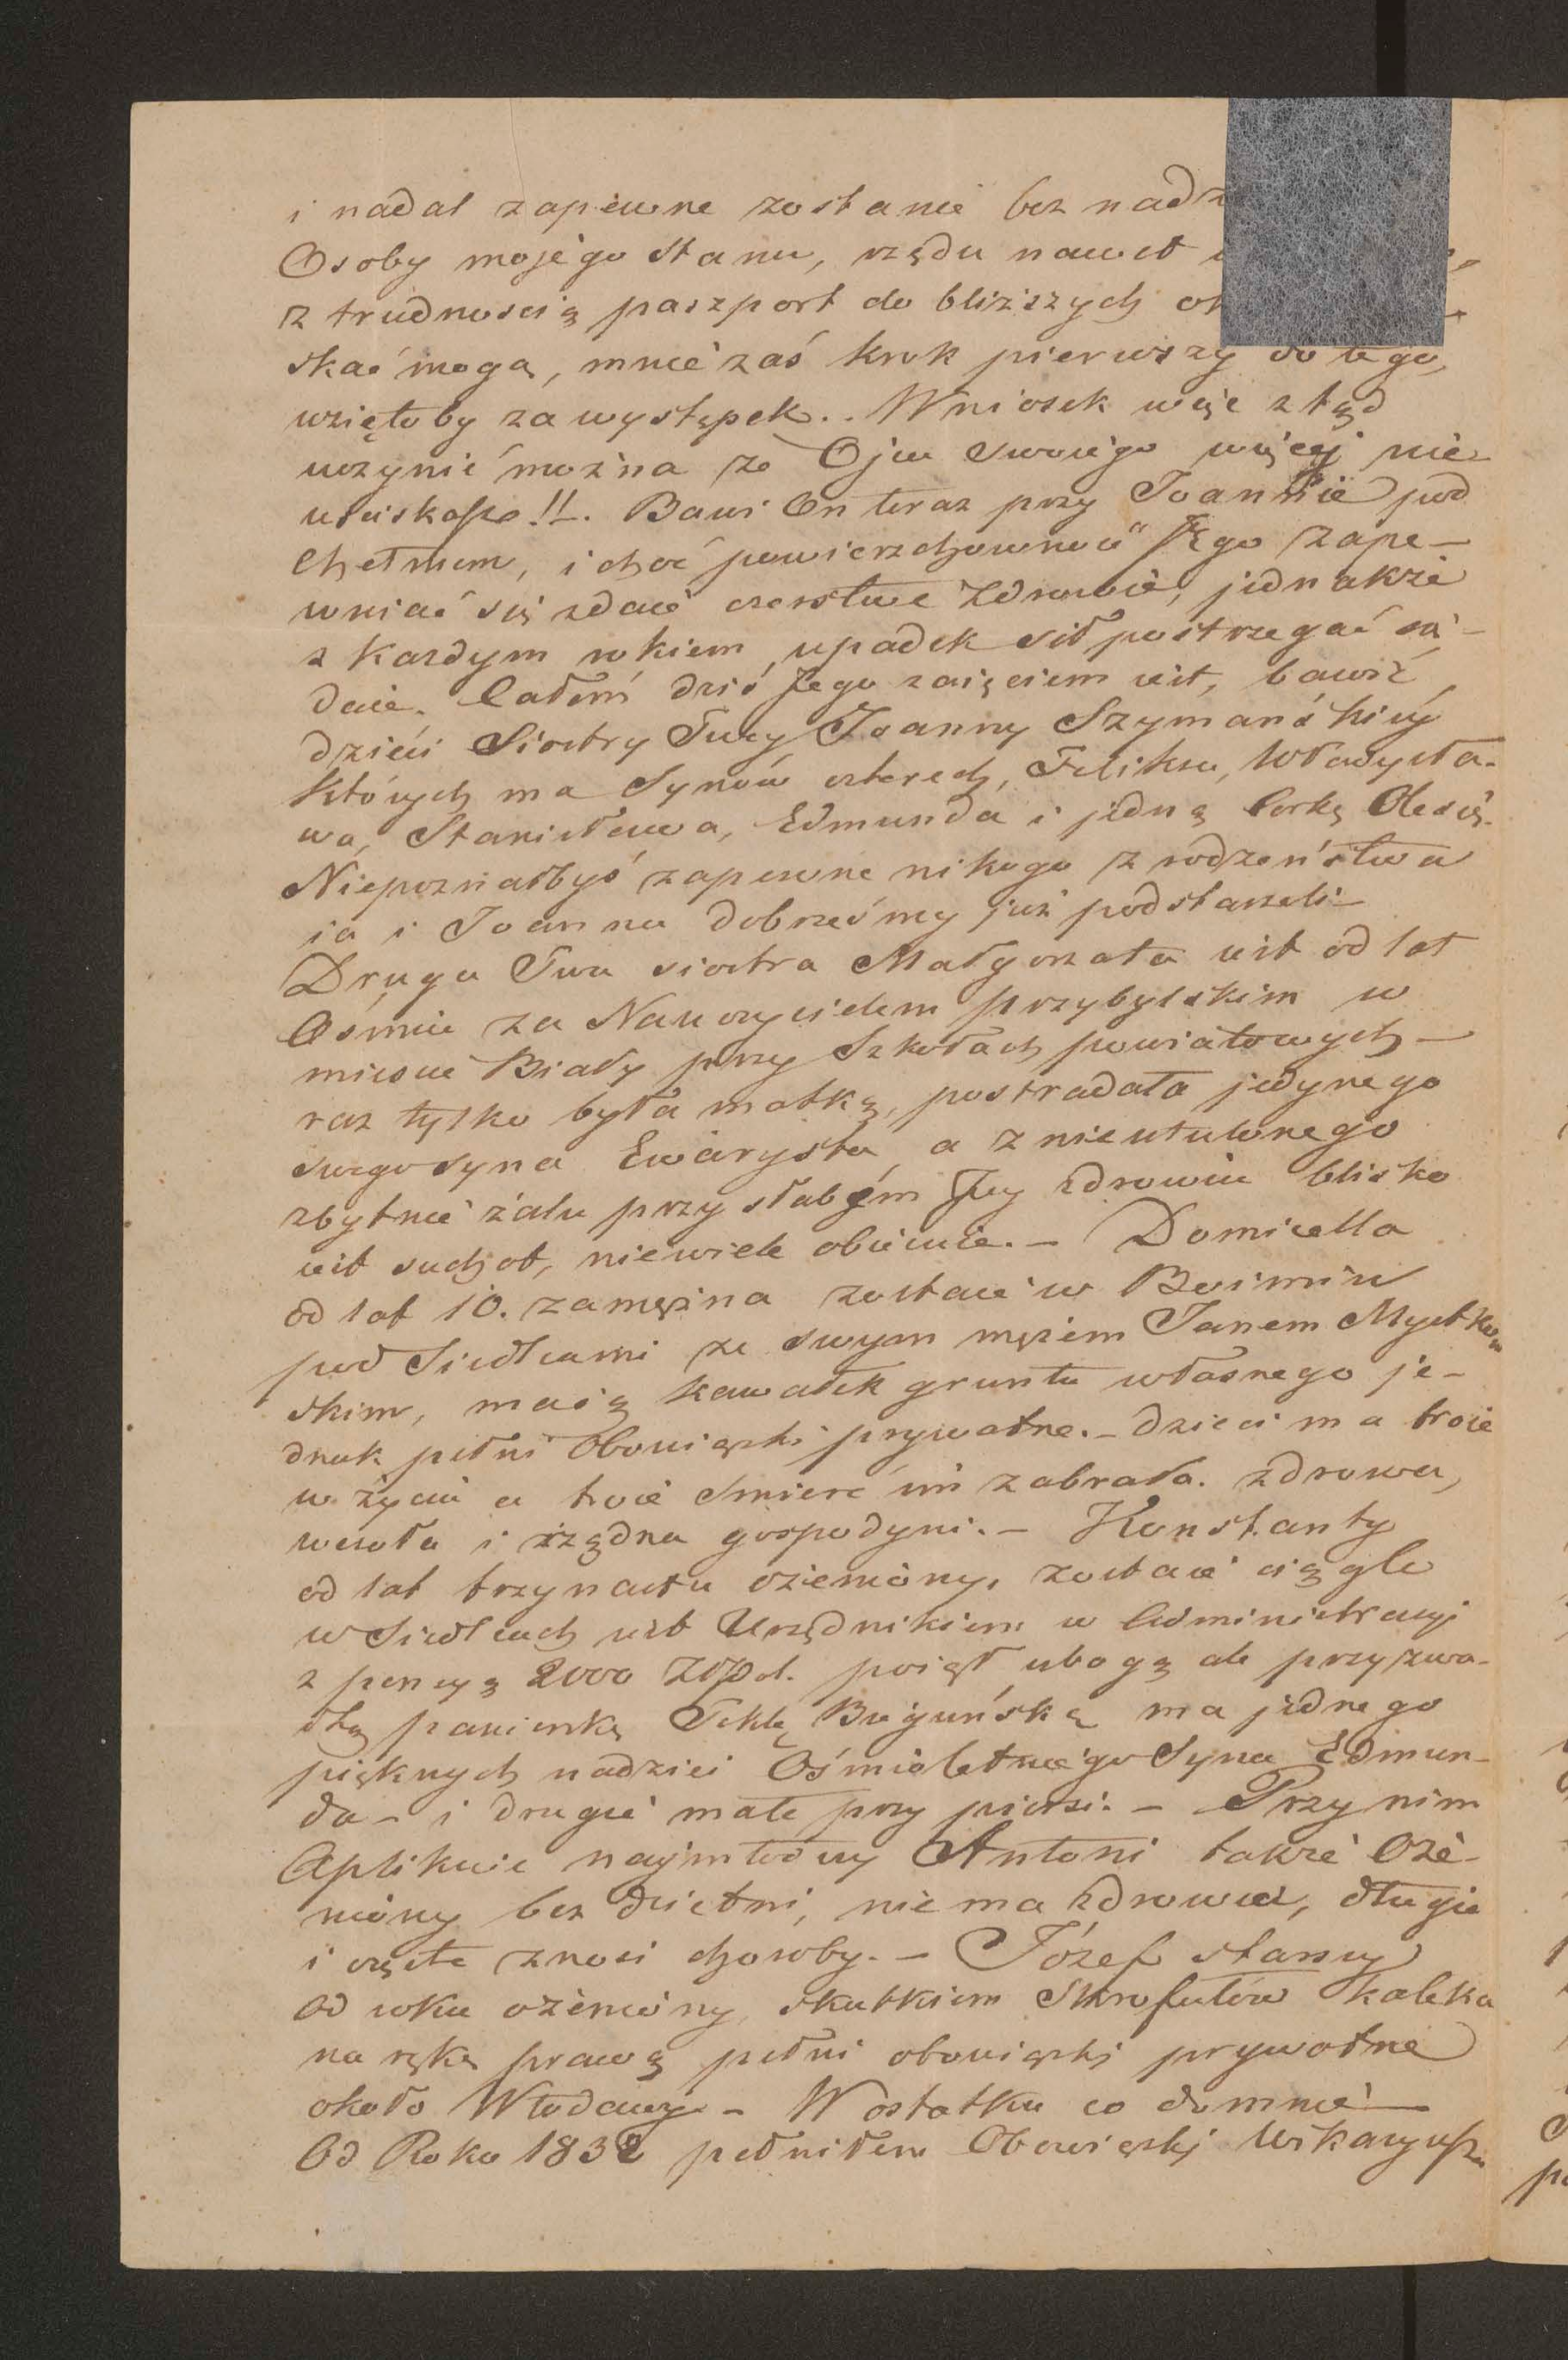 i nadal zapewne zostanie bez nadz
Osoby mojégo stanu, rzędu nawet
z trudnoscią paszport do bliższych
skać mogą, mnie zaś krok pierwszy do tego,
wziętoby za występek.. Wniosek więc ztąd
uczynić można że Ojca swoiego więcej nie
uściskasz!!. Bawi On teraz przy Joannie pod
Chełmem, i choć powierzchowność Jego zape-
wniać się zdaie czerstwe zdrowie, jednakże
z każdym rokiem upadek sił postrzegać się
daie. Całem dziś Jego zaięciem iest, bawić
dzieći Siostry Twey Joanny Szymańskiéy
których ma Synów czterech, Felixa, Władysła-
wa, Stanisława, Edmunda i jedną Corkę Olesię.
Niepoznałbyś zapewne nikogo z rodzeństwa
ia i Joanna dobrześmy już podstarzeli-
Druga Twa siostra Małgorzata iest od lat
Ośmiu za Nauczycielem przybylskim w
miescie Biały przy Szkołach powiatowych -
raz tylko była matką, postradała jedynego
swego syna Ewarysta, a z nieutulonego
zbytnie żalu przy słabém Jey zdrowiu blisko
iest suchot, niewiele obiecuie. - Domicella
od lat 10. zamężna zostaie w Boimiu
pod Siedlcami ze swym mężem Janem Mystkow
skim, maią kawałek gruntu własnego je-
dnak pełni Obowiązki prywatne. - dzieci ma troie
w życiu a troie śmierć im zabrała. zdrowa,
wesoła i rządna gospodyni. - Konstanty
od lat trzynastu ożeniony, zostaie ciągle
w Siedlcach iest Urzędnikiem w Administracyi
z pensyą 2000 Złpol. poiął ubogą ale przyzwo-
itą panienkę Teklę ma jednego
pięknych nadziei Ośmioletniego Syna Edmun-
da - i drugie małe przy piersi. - Przy nim
Aplikuie najmłodszy Antoni także Oże-
niony bez dzietni, nie ma zdrowia, długie
i częste znosi choroby. - Józef starszy
od roku ożeniony, skutkiem Skrofułów kaleka
na rękę prawą pełni obowiązki prywatne
około Włodawy - W ostatku co do mnie -
Od Roku 1832 pełniłem Obowiązki Wikaryusza